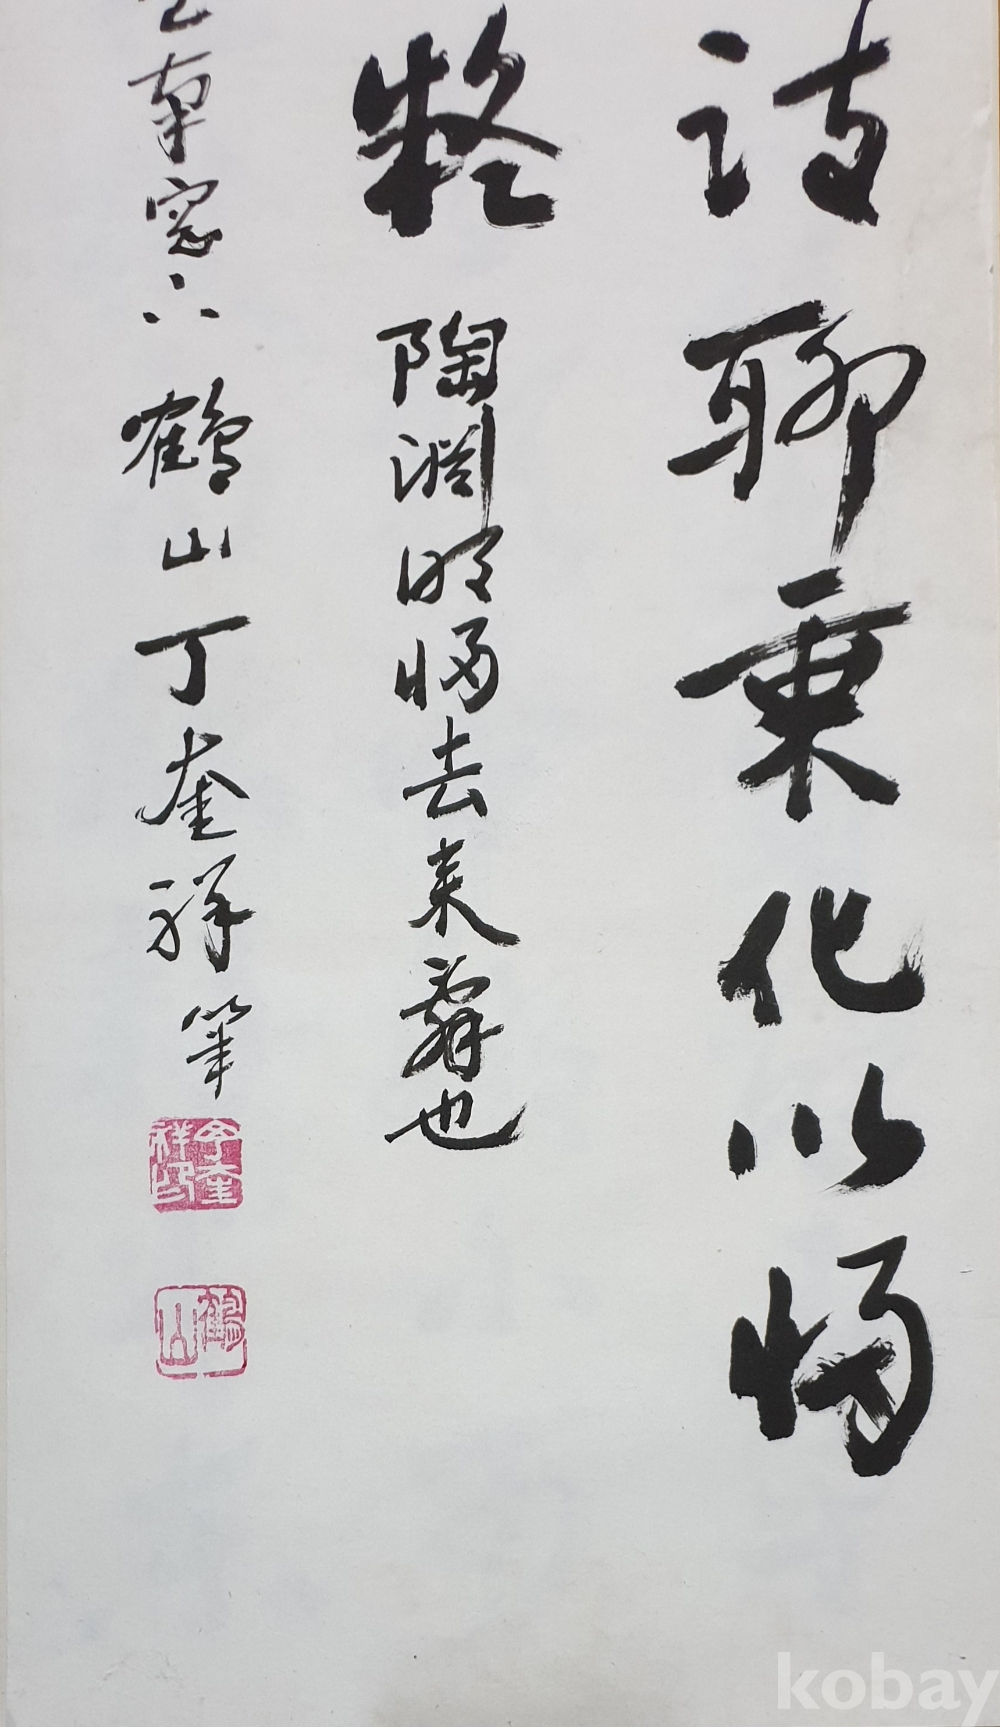 詩聊乘化以歸
疑 陶淵明歸去來辭也
南窓下 鶴山丁奎祥筆
丁奎祥印
鶴山
kobay